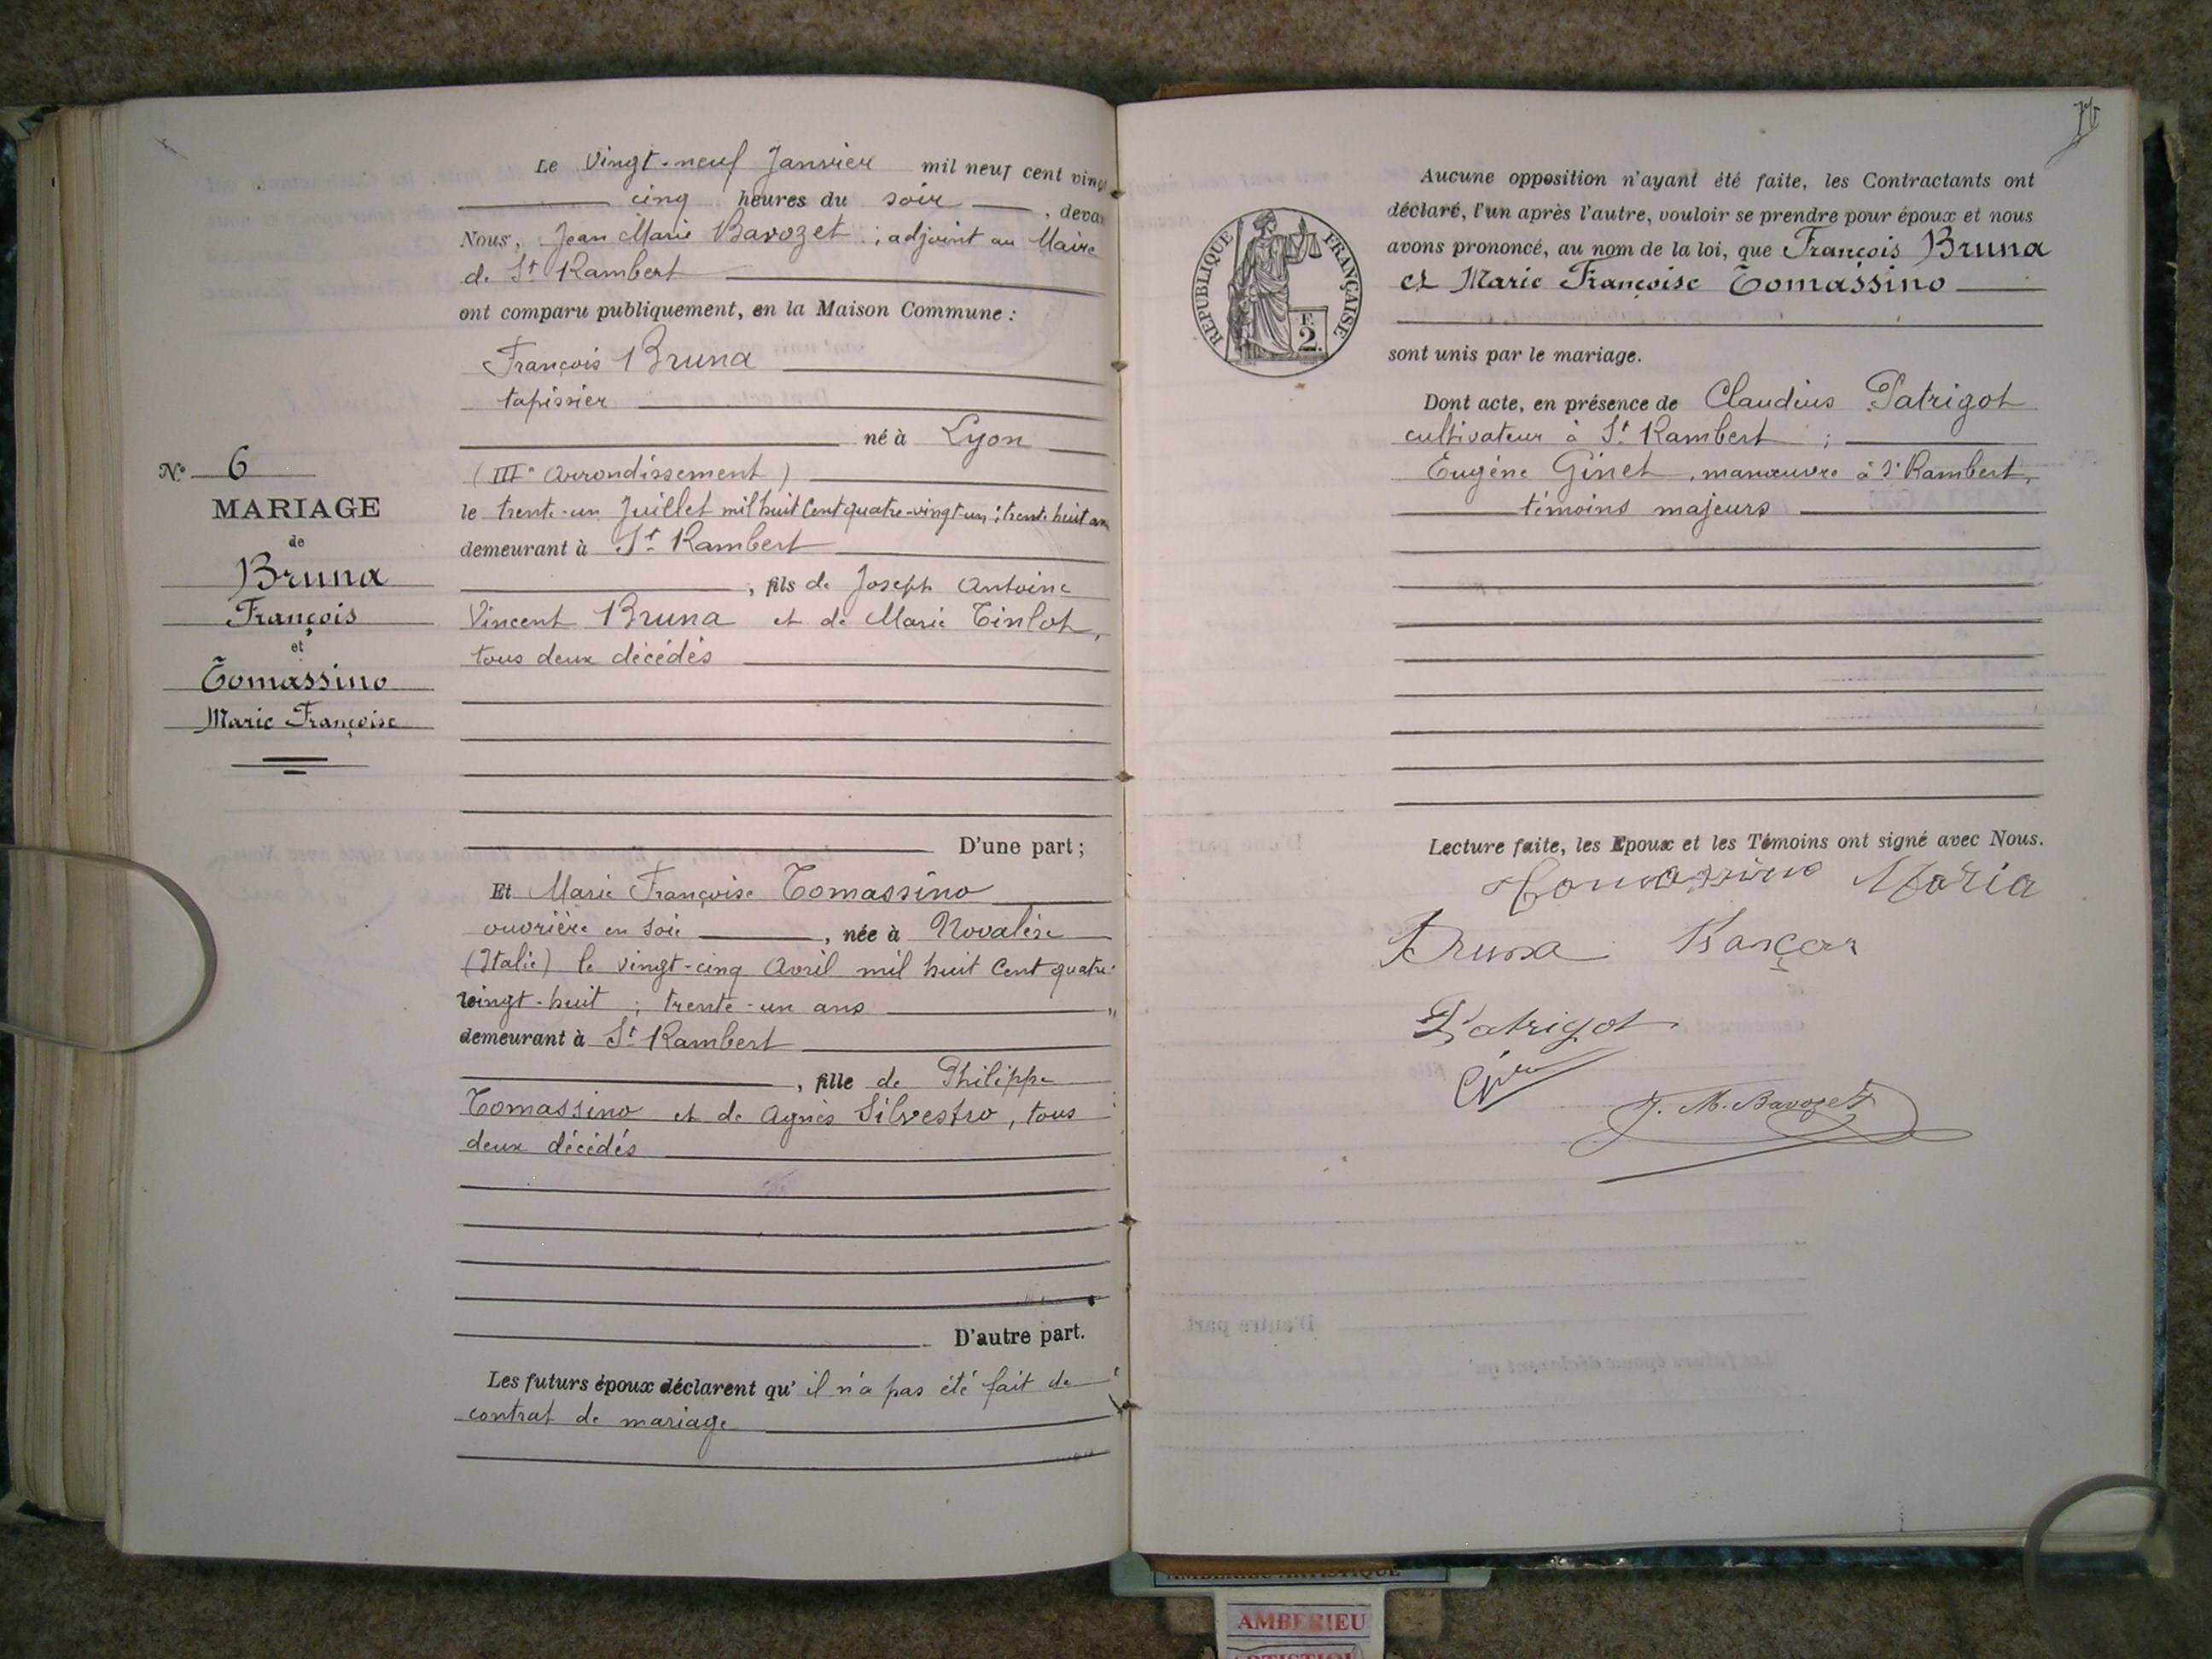 Le Vingt-neuf Janvier mil neuf cent vingt
cinq heures du soir, devan
Nous, Jean Marie Bavozet, adjoint au Maire
de St Rambert
ont comparu publiquement, en la Maison Commune :
François Bruna
tapissier
né à Lyon
(IIIe Arrondissement)
le trente-un Juillet mil huit Cent quatre-vingt-un ; trente huit ans
demeurant à St Rambert
, fils de Joseph Antoine
Vincent Bruna et de Marie Tinlot,
tous deux décédés
D'une part ;
Et Marie Françoise Tomassino
ouvrière en soie, née à Novalèse
(Italie) le vingt-cinq Avril mil huit Cent quatre-
vingt-huit ; trente-un ans
demeurant à St Rambert
, fille de Philippe
Tomassino et de Agnès Silvestro, tous
deux décédés
D'autre part.
Les futurs époux déclarent qu'il n'a pas été fait de
contrat de mariage
N° 6
MARIAGE
de
Bruna
François
et
Tomassino
Marie Françoise
REPUBLIQUE FRANÇAISE
F.
2.
Aucune opposition n'ayant été faite, les Contractants ont
déclaré, l'un après l'autre, vouloir se prendre pour époux et nous
avons prononcé, au nom de la loi, que François Bruna
et Marie Françoise Tomassino
sont unis par le mariage.
Dont acte, en présence de Claudius Patrigot
cultivateur à St Rambert ;
Eugène Ginet, manœuvre à St Rambert,
témoins majeurs
Lecture faite, les Epoux et les Témoins ont signé avec Nous.
Tomassino Maria
Bruna
Patrigot
J. M. Bavozet
AMBERIEU ARTISTIQUE
AMBERIEU